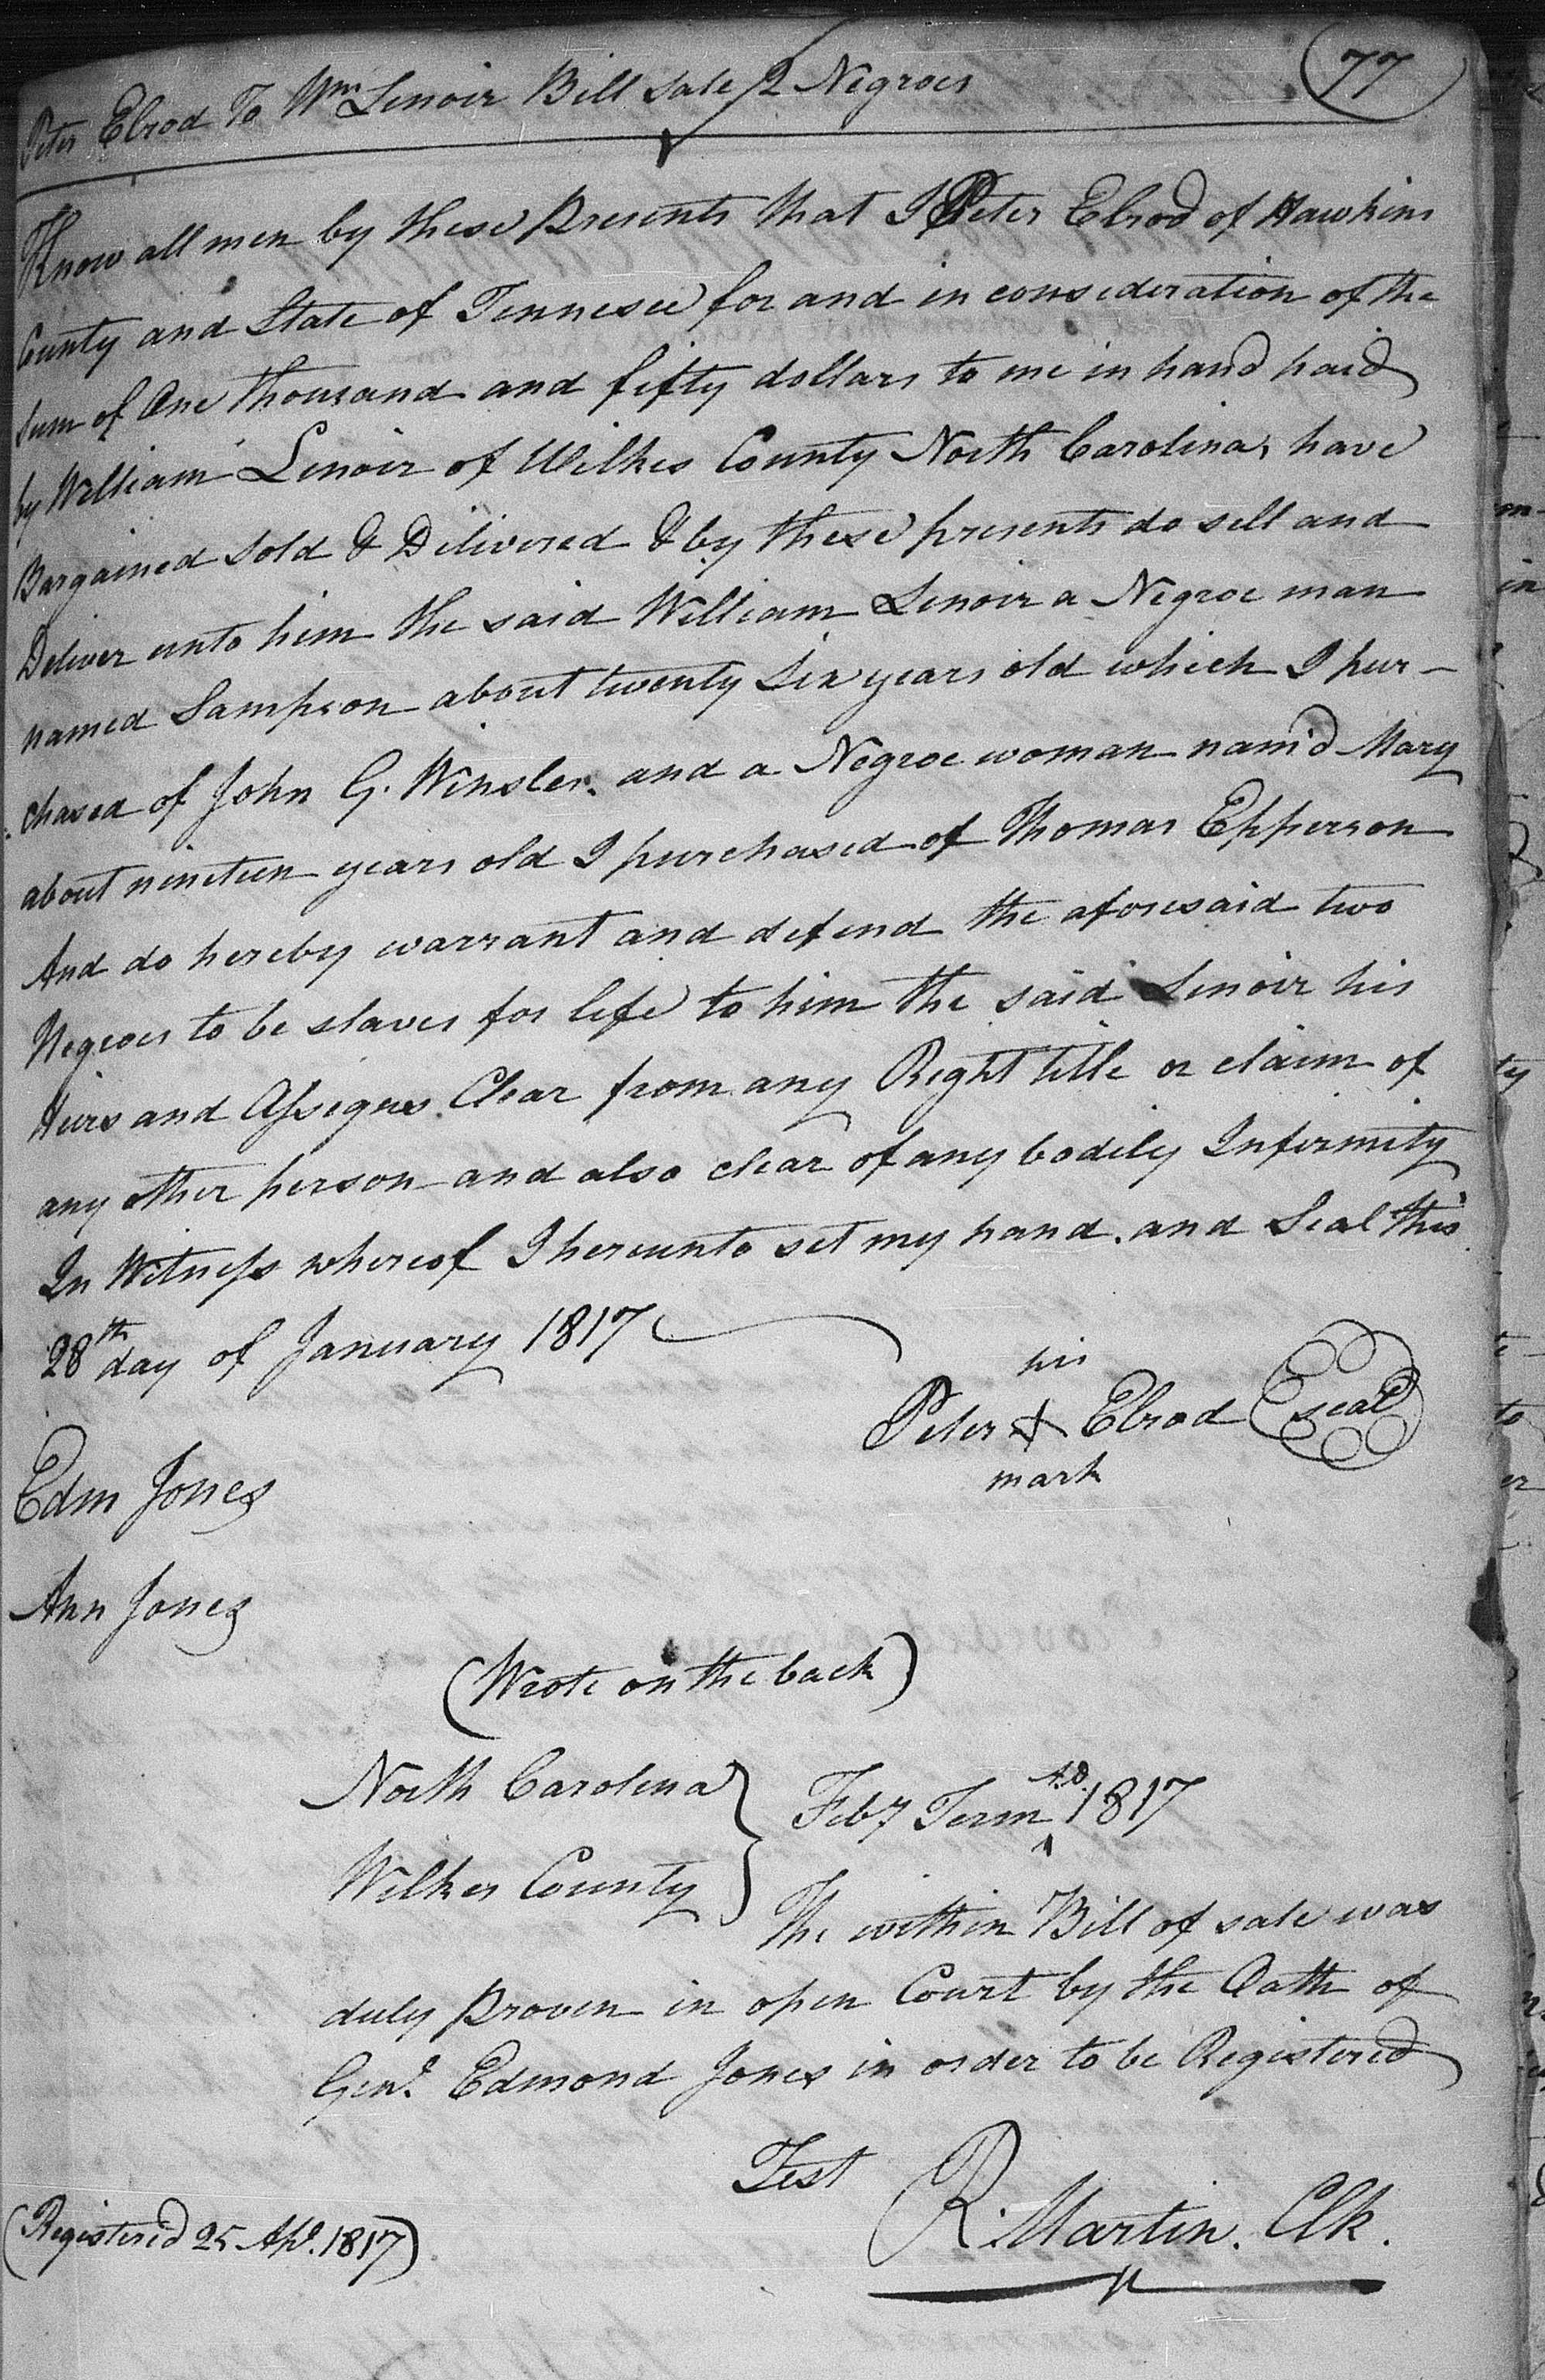 Peter Elrod To Wm Lenoir Bill Sale 2 Negroes
77
Know all men by these Presents that I Peter Elrod of Hawkins
County and State of Tennesee for and in consideration of the
sum of One thousand and fifty dollars to me in hand paid
by William Lenoir of Wilkes County North Carolina, have
Bargained Sold & Delivered & by these presents do sell and
Deliver unto him the said William Lenoir a Negroe man
named Sampson about twenty Six years old which I pur-
chased of John G. Winsler. and a Negroe woman nam'd Mary
about nineteen years old I purchased of Thomas Epperson
And do hereby warrant and defend the aforesaid two
Negroes to be slaves for life to him the said Lenoir his
Heirs and Assigns. Clear from any Right title or claim of
any other person and also clear of any bodily Infirmity
In Witness whereof I hereunto set my hand. and Seal this
28th day of January 1817
his
Peter + Elrod seal
mark
Edm Jones
Ann Jones
(Wrote on the back)
North Carolina } Feby Term A.D. 1817
Wilkes County
The within Bill of sale was
duly Proven in open Court by the Oath of
Genl. Edmond Jones in order to be Registered
Test
R. Martin. Clk.
(Registered 25 Apl. 1817)